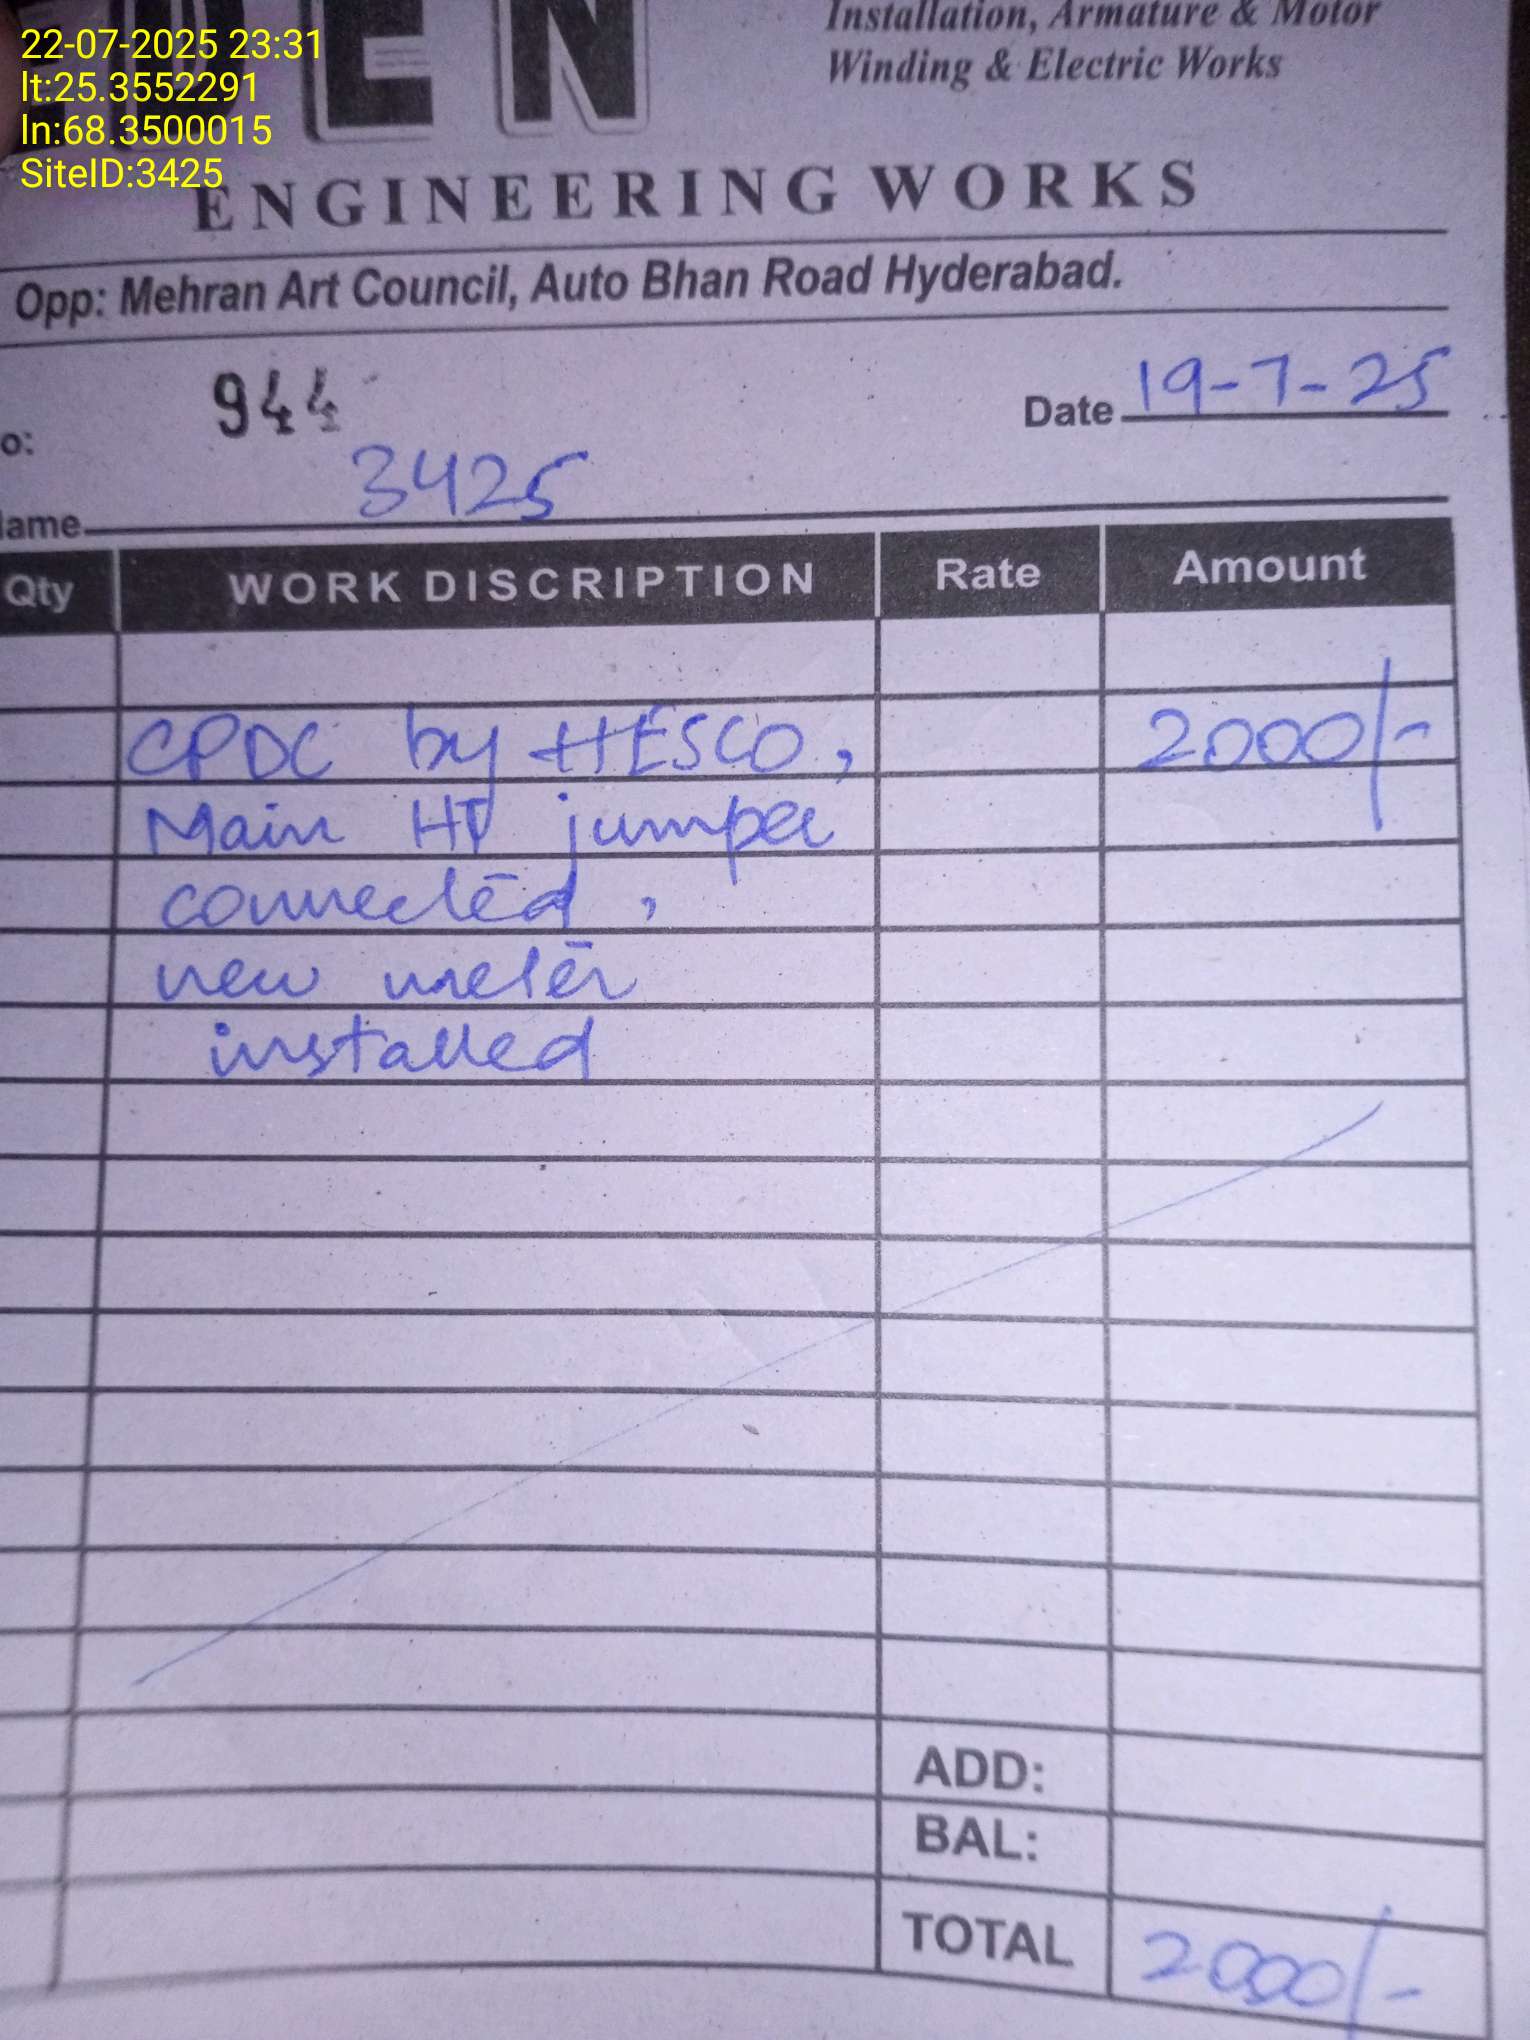 22-07-2025 23:31
lt:25.3552291
ln:68.3500015
SiteID:3425
DEN
Installation, Armature & Motor
Winding & Electric Works
ENGINEERING WORKS
Opp: Mehran Art Council, Auto Bhan Road Hyderabad.
o: 944
Date 19-7-25
ame 3425
Qty WORK DISCRIPTION Rate Amount
CPDC by HESCO, 2000/-
Main HT jumper
connected,
new meter
installed
ADD:
BAL:
TOTAL 2000/-